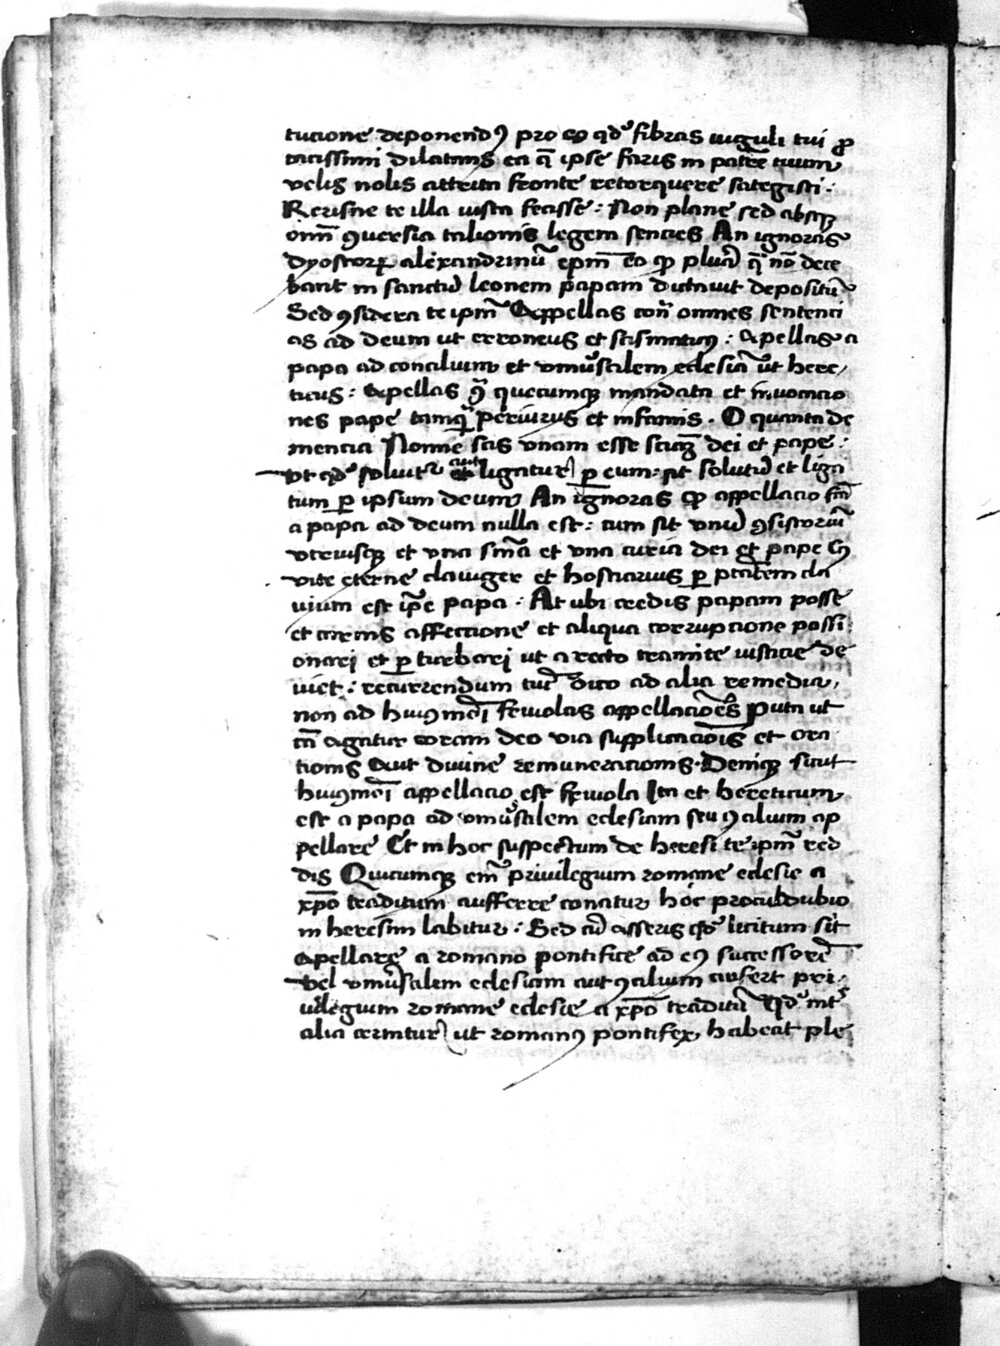 tucione deponendꝯ pro eo qdᵒ fibras iuguli tui ꝓ
tacissimi dilatans ea q̄ ipse faris in patrē tuum
velis nolis attrita fronte retorquere sategisti.
Rerisne te illa iusta fecisse: Non plane sed absqꝫ
om̄i ꝯversia talionis legem sencies An ignoras
dyoscorꝝ alexandrinū ep̄m Eo ꝙ plura q̄ nō dece
bant in sanctū leonem papam dictauit depositū
Sed ꝯsidera te ip̄m Appellas con̄ omnes sentenci
as ad deum ut erroneus et scismaticꝰ: Apellas a
papa ad concilium et vniūsalem eclesiā ut here
ticus: Apellas q̄ quecumqꝫ mandata et invocacio
nes pape tamqȝ periurus et infamis. O quanta de
mencia Nonne scis vnam esse sciam dei et pape:
vt qdᵒ soluitur aut ligatur ꝑ eum: sit solutū et liga
tum ꝑ ipsum deum An ignoras ꝙ appellacio
a papa ad deum nulla est: cum sit vnū ꝯsistoriū
vtriusqꝫ et vna sn̄ia et vna curia dei et pape
vite eterne clauiger et hostiarius ꝑ ptātem cla
uium est ip̄e papa: At ubi credis papam posse
et carnis affectione et aliqua corrupcione possi
onari et ꝑturbari ut a recto tramite iusticie de
uiet: recurrendum tūc dico ad alia remedia,
non ad huiꝰmōi friuolas appellaciōes puta ut
tm̄ agatur coram deo via supplicaciōis et ora
tionis aut divine remuneracionis. Deniqꝫ sicut
huiꝰmōi appellacio est friuola Ita et hereticum
est a papa ad vniūsalem eclesiam seu ꝯcilium ap
pellare Et in hoc suspectum de heresi te ip̄m red
dis Quicumqꝫ em̄ priuilegium romane eclesie a
xp̄o traditum aufferre conatur hoc proculdubio
in heresim labitur: Sed cū asseris qdᵒ licitum sit
apellare a romano pontifice ad eiꝰ successorē
vel vniūsalem eclesiam aut ꝯcilium aufert pri
uilegium romane eclesie a xp̄o traditū qdᵒ int̄
alia cernitur ut romanꝰ pontifex habeat ple